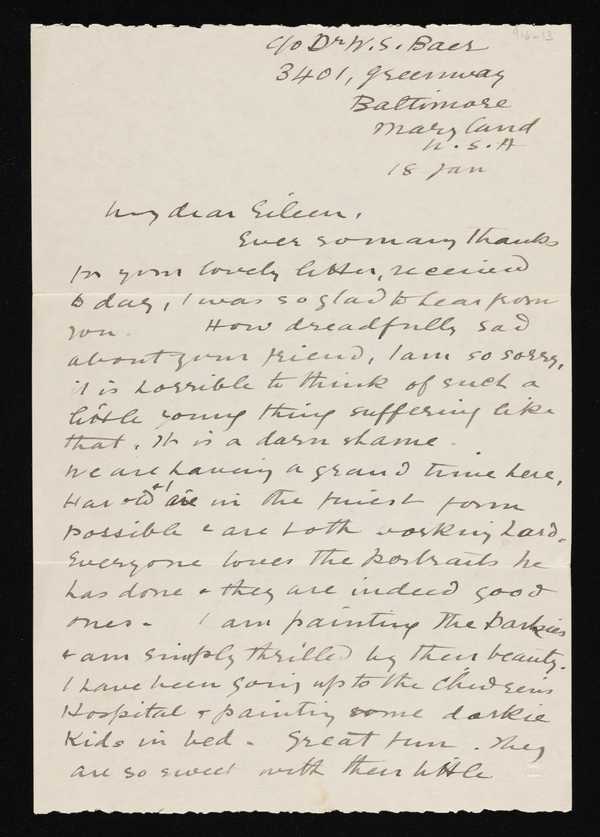 916-13
c/o Dr W. S. Baer
3401, Greenway
Baltimore
Maryland
U. S. A
18 Jan
My dear Eileen,
Ever so many thanks
for your lovely letter, received
to day, I was so glad to hear from
you. How dreadfully sad
about your friend, I am so sorry,
it is horrible to think of such a
little young thing suffering like
that. It is a darn shame.
We are having a grand time here,
Harold & I are in the finest form
possible & are both working hard.
Everyone loves the portraits he
has done & they are indeed good
ones - I am painting the Darkies
& am simply thrilled by their beauty.
I have been going up to the Children's
Hospital & painting some darkie
Kids in bed - Great fun. They
are so sweet with their little